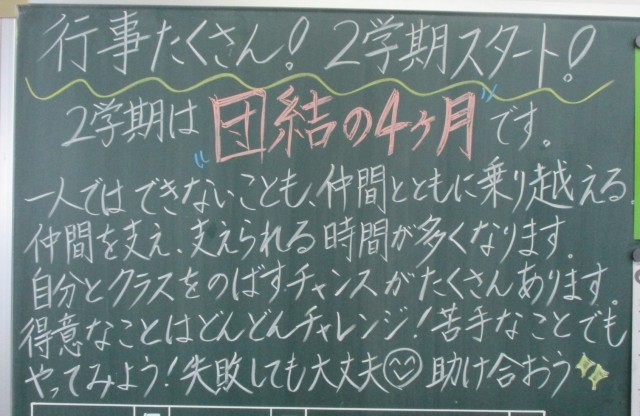 行事たくさん！２学期スタート！
２学期は〝団結の４ヶ月〟です。
一人ではできないことも、仲間とともに乗り越える。
仲間を支え、支えられる時間が多くなります。
自分とクラスをのばすチャンスがたくさんあります。
得意なことはどんどんチャレンジ！苦手なことでも
やってみよう！失敗しても大丈夫☺助け合おう